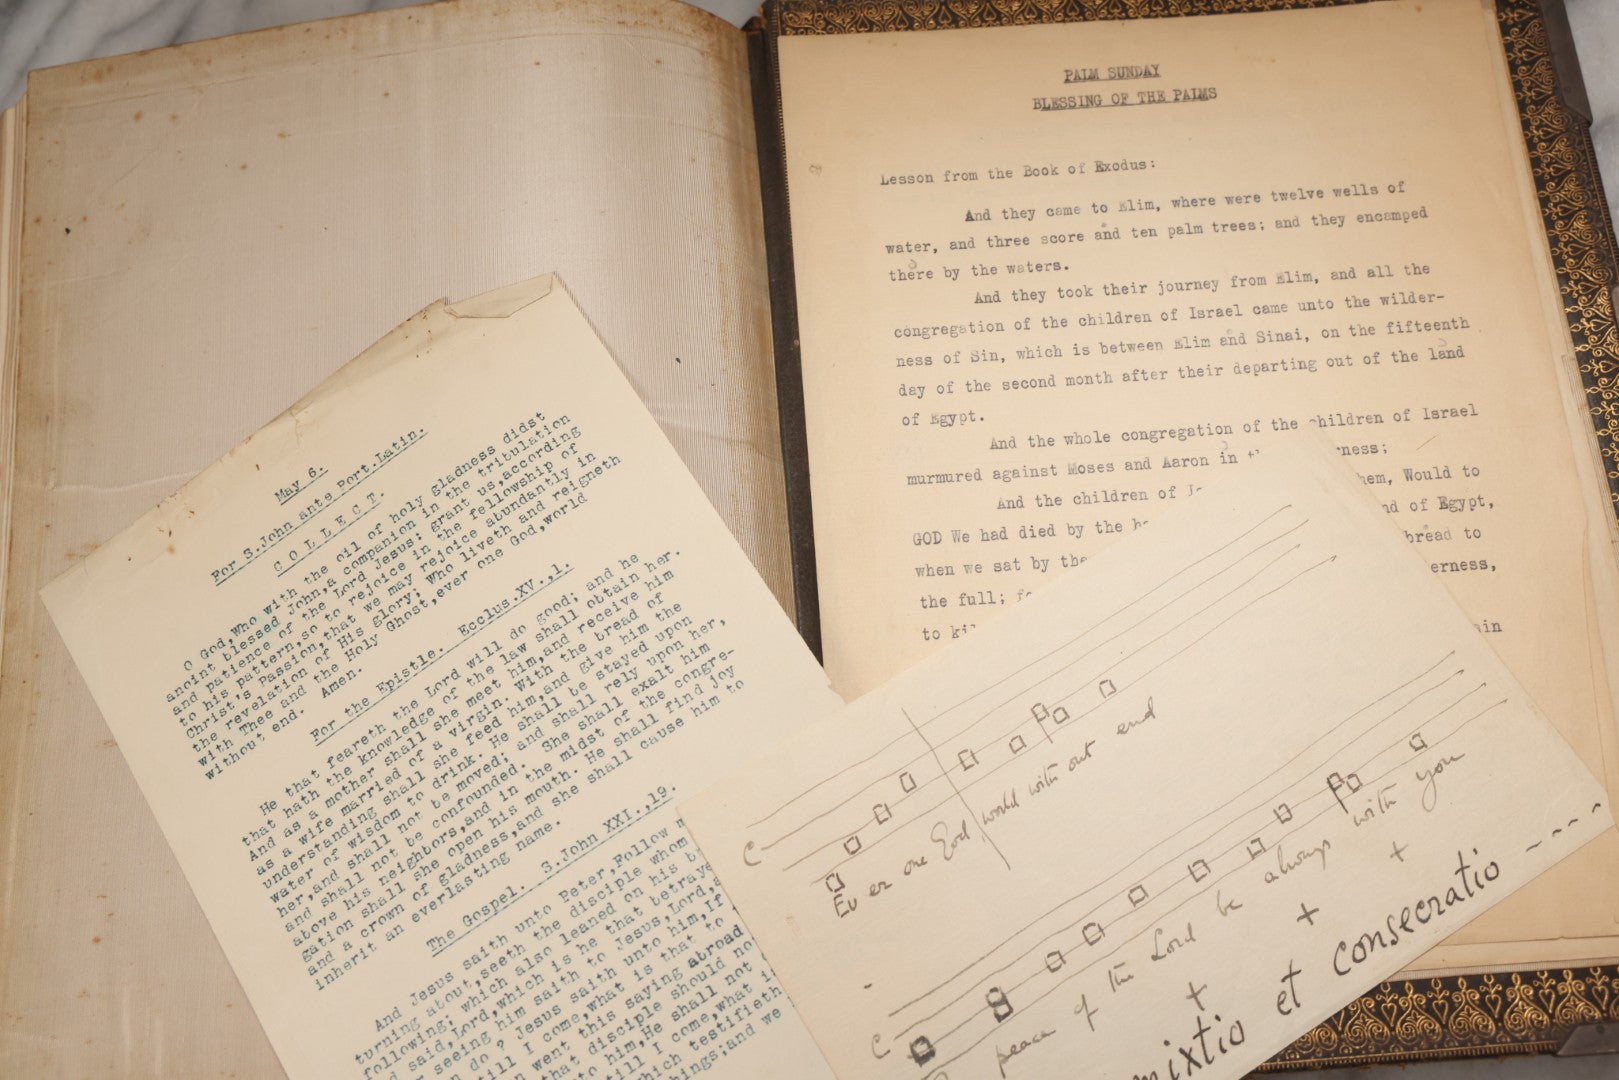 PALM SUNDAY
BLESSING OF THE PALMS
Lesson from the Book of Exodus:
And they came to Elim, where were twelve wells of
water, and three score and ten palm trees; and they encamped
there by the waters.
And they took their journey from Elim, and all the
congregation of the children of Israel came unto the wilder-
ness of Sin, which is between Elim and Sinai, on the fifteenth
day of the second month after their departing out of the land
of Egypt.
And the whole congregation of the children of Israel
murmured against Moses and Aaron in rness;
And the children of hem, Would to
GOD We had died by the nd of Egypt,
when we sat by the bread to
the full; erness,
to
May 6.
For S.John ante Port.Latin.
COLLECT.
O God,Who with the oil of holy gladness didst
anoint blessed John,a companion in the tribulation
and patience of the Lord Jesus: grant us,according
to his pattern,so to rejoice in the fellowship of
Christ's Passion,that we may rejoice abundantly in
the revelation of His glory; Who liveth and reigneth
with Thee and the Holy Ghost,ever one God,world
without end. Amen.
For the Epistle. Ecclus.XV.,1.
He that feareth the Lord will do good; and he
that hath the knowledge of the law shall obtain her.
And as a mother shall she meet him,and receive him
as a wife married of a virgin. With the bread of
understanding shall she feed him,and give him the
water of wisdom to drink. He shall be stayed upon
her,and shall not be moved; and shall rely upon her,
and shall not be confounded. She shall exalt him
above his neighbors,and in the midst of the congre-
gation shall she open his mouth. He shall find joy
and a crown of gladness,and she shall cause him to
inherit an everlasting name.
The Gospel. S.John XXI.,19.
And Jesus saith unto Peter,Follow
turning about,seeth the disciple whom
following; which also leaned on his
said,Lord,which is he that betraye
seeing him saith to Jesus,Lord,
do? Jesus saith unto him,If
till I come,what is that to
went this saying abroad
that disciple should not
unto him,He shall not
till I come,what
which testifieth
things;and we
C
Ev er one God, world with out end
C
peace of the Lord be always with you
+ + + +
mixtio et consecratio ----